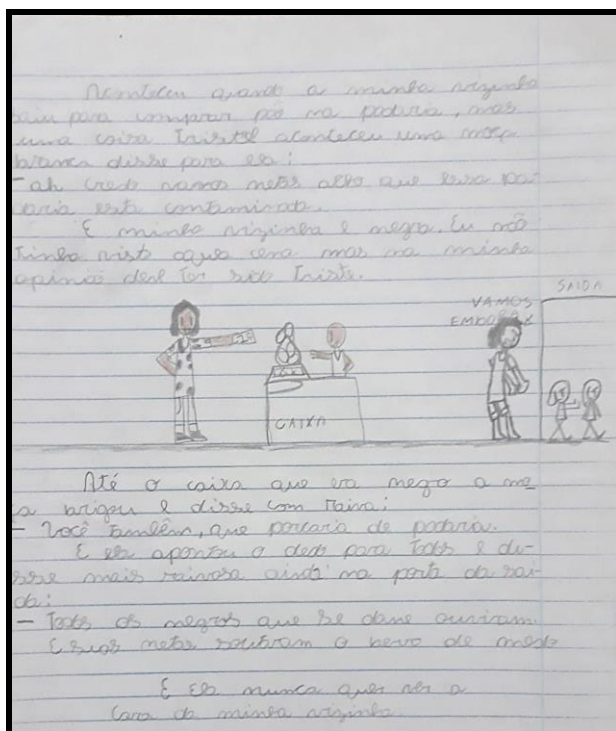 Aconteceu quando a minha vizinha
saiu para comprar pão na padaria, mas
uma coisa Triste aconteceu uma moça
branca disse para ela:
- ah credo vamos netos acho que essa pa
daria está contaminada.
E minha vizinha é negra. Eu não
Tinha visto aquela cena mas na minha
opinião deve Ter sido Triste.
VAMOS
EMBORA
SAIDA
CAIXA
Até o caixa que era negro a me
brigou e disse com raiva:
- Você Também, que porcaria de padaria.
E ela apontou o dedo para Todos e di-
sse mais raivosa ainda na porta da saí-
da:
- Todos os negros que se dane ouviram.
E seus netos soltaram o berro de medo
E ela nunca quer ver a
Cara da minha vizinha.